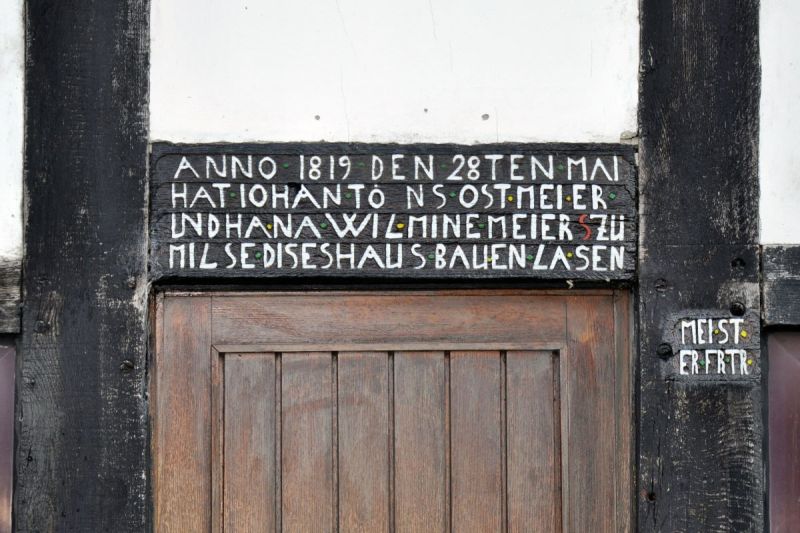 ANNO·1819·DEN·28TEN·MAI
HAT·IOHANTÖ NS·OSTMEI·ER·
UNDHA·NA·WIL·MINE·MEIER S ZU
MILSE·DISESHAUS·BAUEN·LA·SEN
MEI·ST·
ER·FRTR·